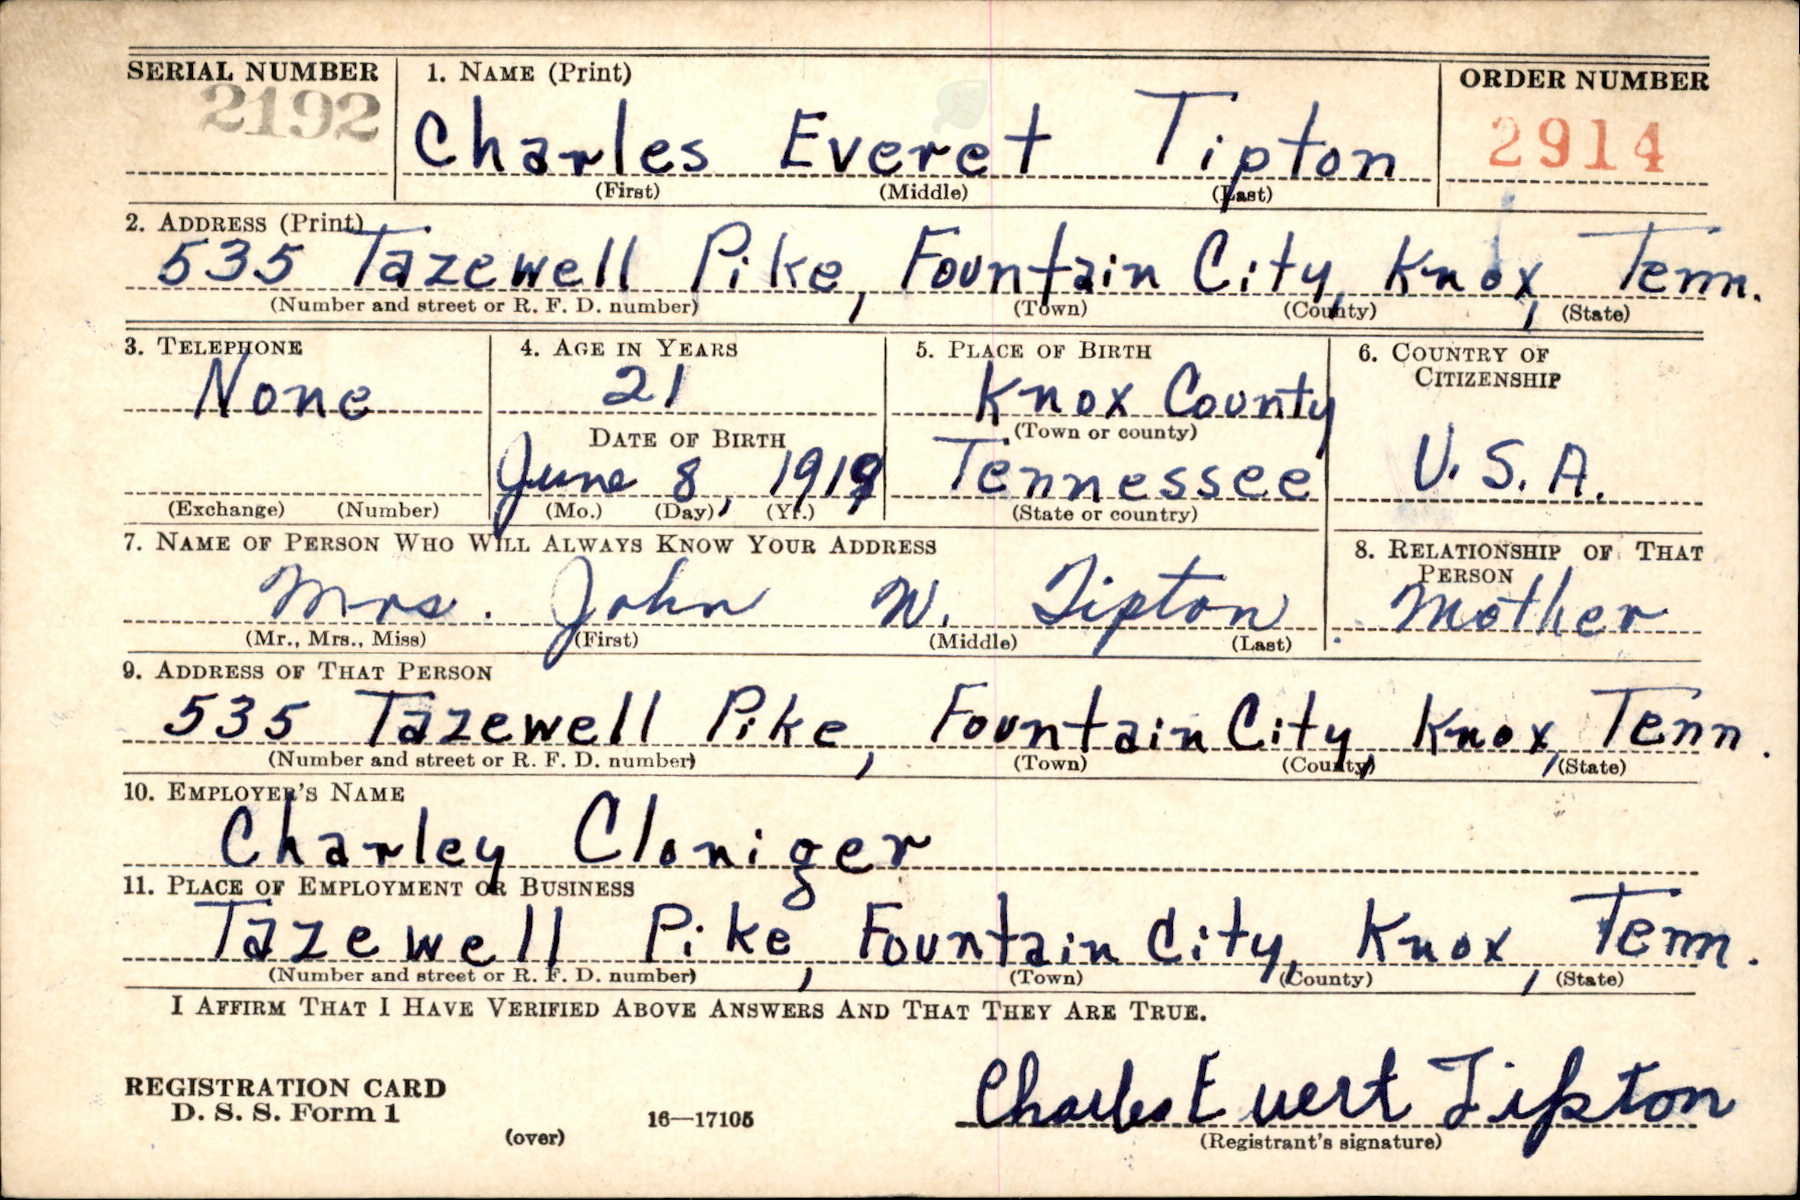 SERIAL NUMBER 1. NAME (Print) ORDER NUMBER
2192 Charles Everet Tipton 2914
(First) (Middle) (Last)
2. ADDRESS (Print)
535 Tazewell Pike, Fountain City, Knox, Tenn.
(Number and street or R. F. D. number) (Town) (County) (State)
3. TELEPHONE 4. AGE IN YEARS 5. PLACE OF BIRTH 6. COUNTRY OF CITIZENSHIP
None 21 Knox County
DATE OF BIRTH (Town or county)
June 8, 1919 Tennessee U.S.A.
(Exchange) (Number) (Mo.) (Day) (Yr.) (State or country)
7. NAME OF PERSON WHO WILL ALWAYS KNOW YOUR ADDRESS 8. RELATIONSHIP OF THAT PERSON
Mrs. John W. Tipton Mother
(Mr., Mrs., Miss) (First) (Middle) (Last)
9. ADDRESS OF THAT PERSON
535 Tazewell Pike, Fountain City, Knox, Tenn.
(Number and street or R. F. D. number) (Town) (County) (State)
10. EMPLOYER'S NAME
Charley Cloniger
11. PLACE OF EMPLOYMENT OR BUSINESS
Tazewell Pike, Fountain City, Knox, Tenn.
(Number and street or R. F. D. number) (Town) (County) (State)
I AFFIRM THAT I HAVE VERIFIED ABOVE ANSWERS AND THAT THEY ARE TRUE.
REGISTRATION CARD
D. S. S. Form 1 16—17105 Charles Evert Tipton
(over) (Registrant's signature)